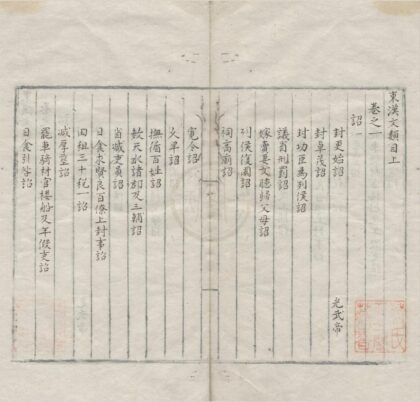 東漢文類目上
卷之一
詔一
封更始詔 光武帝
封卓茂詔
封功臣爲列侯詔
議省刑罰詔
嫁賣妻子聽歸父母詔
列侯復國詔
祠高廟詔
寬令詔
久旱詔
撫循百姓詔
敕天水諸郡及三輔詔
省減吏員詔
日食求賢良百僚上封事詔
田租三十稅一詔
減厚葬詔
罷車騎材官樓船及軍假吏詔
日食引咎詔